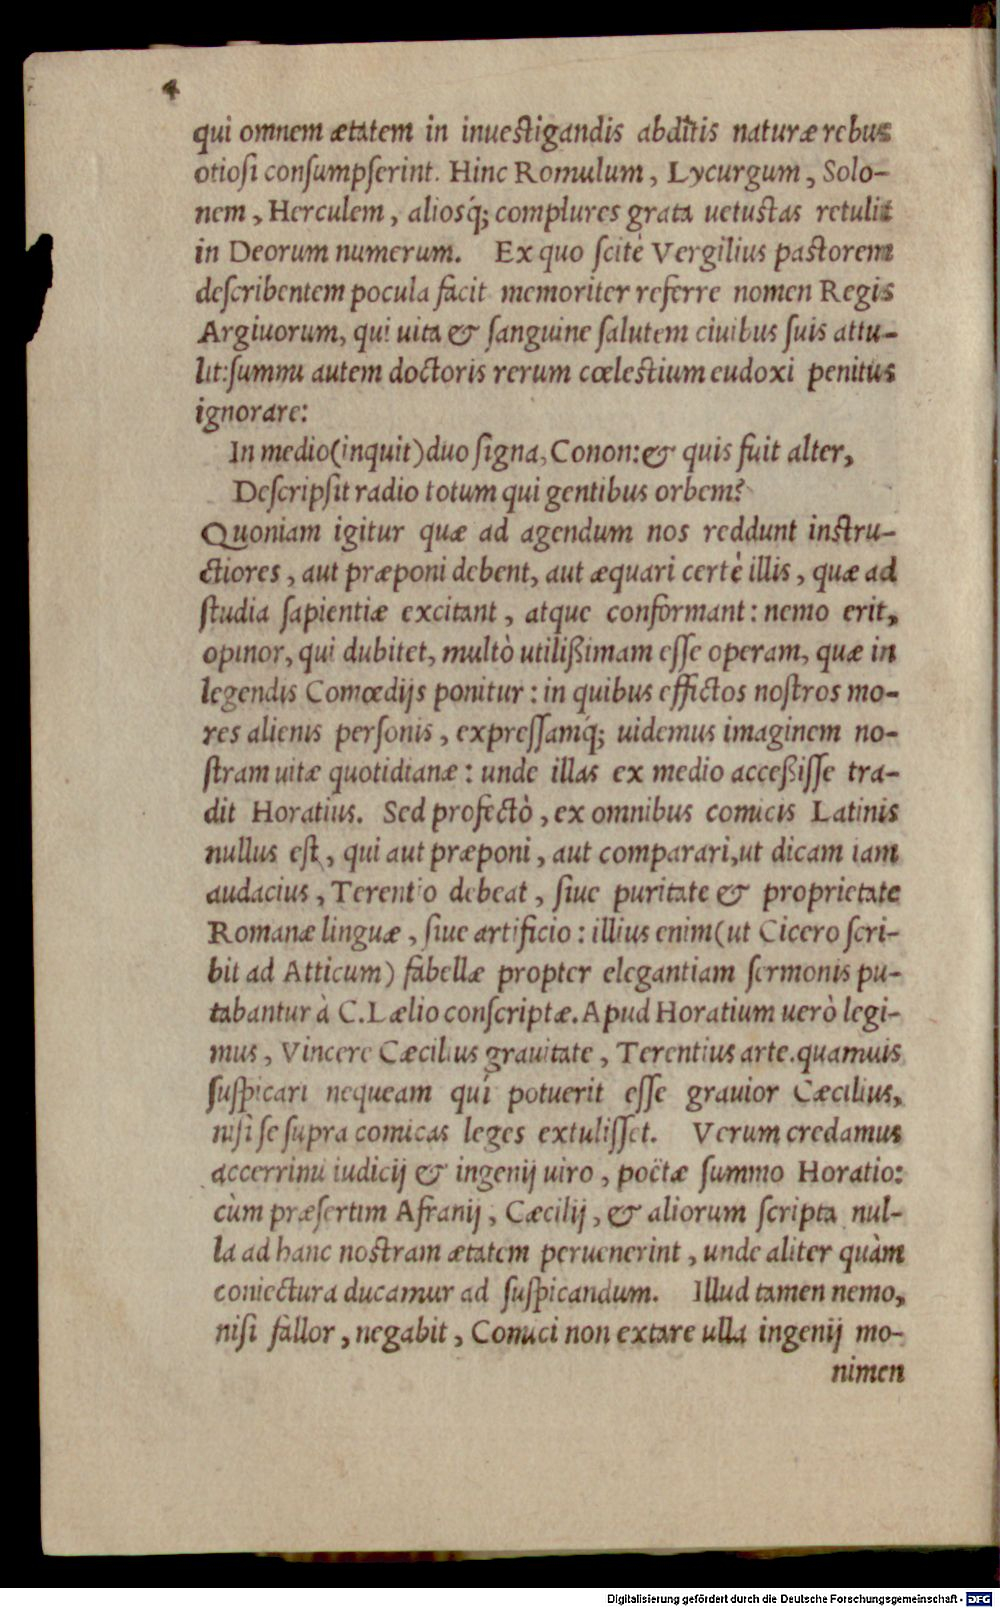 4
qui omnem ætatem in inuestigandis abditis naturæ rebus
otiosi consumpserint. Hinc Romulum, Lycurgum, Solo-
nem, Herculem, aliosq́; complures grata uetustas retulit
in Deorum numerum. Ex quo scitè Vergilius pastorem
describentem pocula facit memoriter referre nomen Regis
Argiuorum, qui uita & sanguine salutem ciuibus suis attu-
lit: summi autem doctoris rerum cœlestium eudoxi penitus
ignorare:
In medio (inquit) duo signa, Conon: & quis fuit alter,
Descripsit radio totum qui gentibus orbem?
Quoniam igitur quæ ad agendum nos reddunt instru-
ctiores, aut præponi debent, aut æquari certè illis, quæ ad
studia sapientiæ excitant, atque conformant: nemo erit,
opinor, qui dubitet, multò utilißimam esse operam, quæ in
legendis Comœdijs ponitur: in quibus effictos nostros mo-
res alienis personis, expressamq́; uidemus imaginem no-
stram uitæ quotidianæ: unde illas ex medio acceßisse tra-
dit Horatius. Sed profectò, ex omnibus comicis Latinis
nullus est, qui aut præponi, aut comparari, ut dicam iam
audacius, Terentio debeat, siue puritate & proprietate
Romanæ linguæ, siue artificio: illius enim (ut Cicero scri-
bit ad Atticum) fabellæ propter elegantiam sermonis pu-
tabantur à C. Lælio conscriptæ. Apud Horatium uerò legi-
mus, Vincere Cæcilius grauitate, Terentius arte. quamuis
suspicari nequeam quî potuerit esse grauior Cæcilius,
nisi se supra comicas leges extulisset. Verum credamus
accerrimi iudicij & ingenij uiro, poëtæ summo Horatio:
cùm præsertim Afranij, Cæcilij, & aliorum scripta nul-
la ad hanc nostram ætatem peruenerint, unde aliter quàm
coniectura ducamur ad suspicandum. Illud tamen nemo,
nisi fallor, negabit, Comici non extare ulla ingenij mo-
nimen
Digitalisierung gefördert durch die Deutsche Forschungsgemeinschaft - DFG